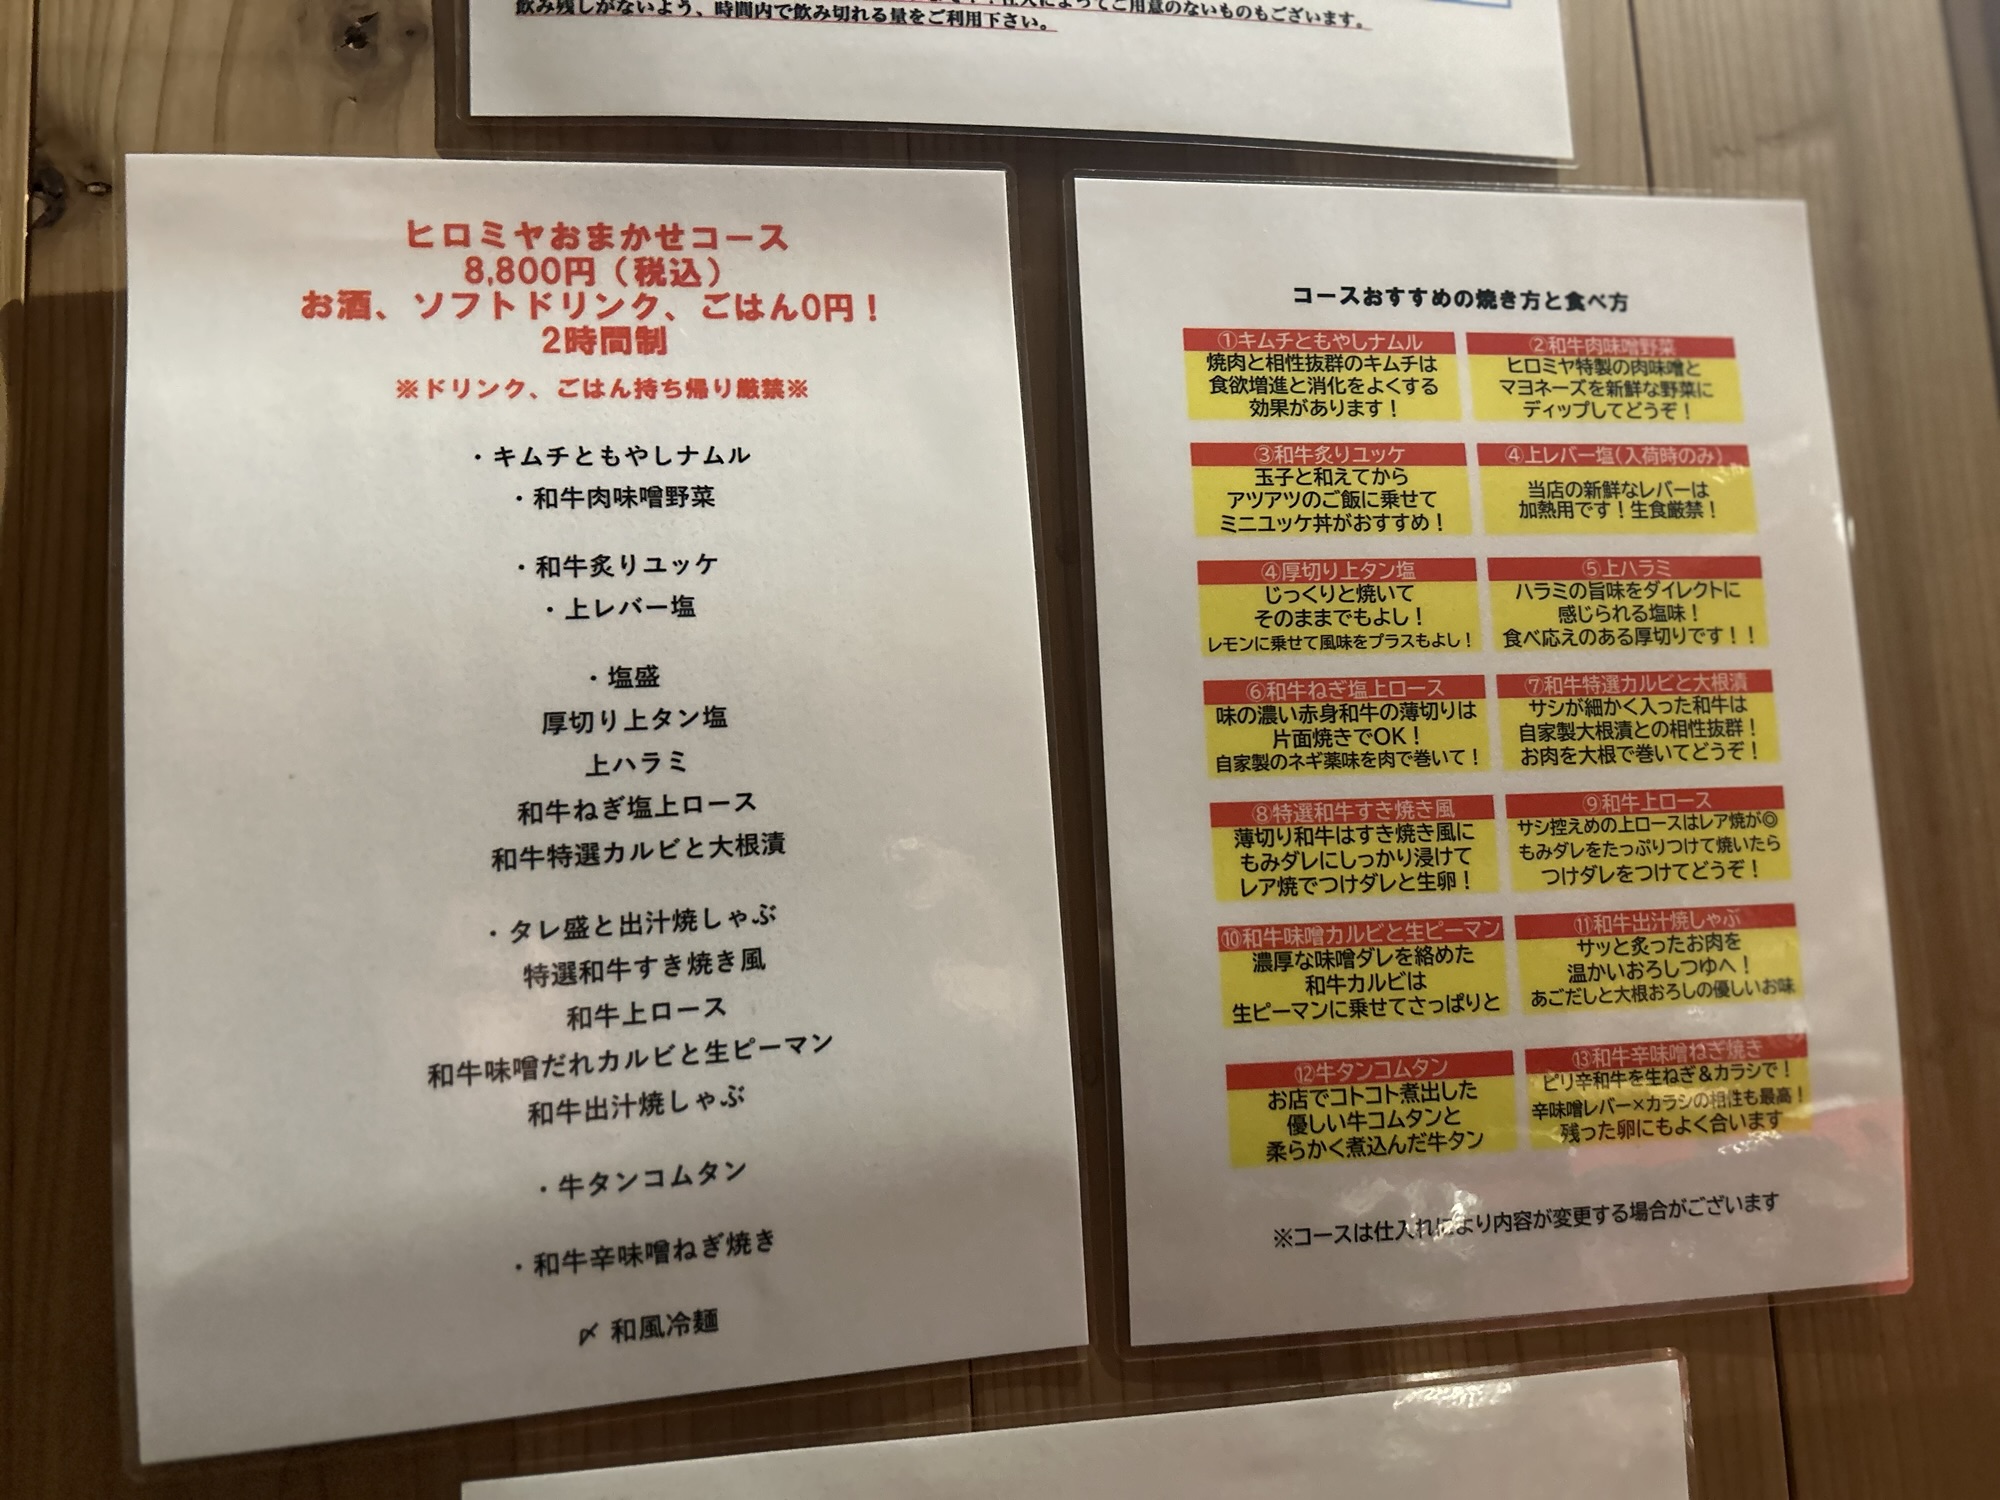 飲み残しがないよう、時間内で飲み切れる量をご利用下さい。
仕入によってご用意のないものもございます。
ヒロミヤおまかせコース
8,800円（税込）
お酒、ソフトドリンク、ごはん0円！
2時間制
※ドリンク、ごはん持ち帰り厳禁※
・キムチともやしナムル
・和牛肉味噌野菜
・和牛炙りユッケ
・上レバー塩
・塩盛
厚切り上タン塩
上ハラミ
和牛ねぎ塩上ロース
和牛特選カルビと大根漬
・タレ盛と出汁焼しゃぶ
特選和牛すき焼き風
和牛上ロース
和牛味噌だれカルビと生ピーマン
和牛出汁焼しゃぶ
・牛タンコムタン
・和牛辛味噌ねぎ焼き
〆 和風冷麺
コースおすすめの焼き方と食べ方
①キムチともやしナムル
焼肉と相性抜群のキムチは
食欲増進と消化をよくする
効果があります！
②和牛肉味噌野菜
ヒロミヤ特製の肉味噌と
マヨネーズを新鮮な野菜に
ディップしてどうぞ！
③和牛炙りユッケ
玉子と和えてから
アツアツのご飯に乗せて
ミニユッケ丼がおすすめ！
④上レバー塩(入荷時のみ)
当店の新鮮なレバーは
加熱用です！生食厳禁！
④厚切り上タン塩
じっくりと焼いて
そのままでもよし！
レモンに乗せて風味をプラスもよし！
⑤上ハラミ
ハラミの旨味をダイレクトに
感じられる塩味！
食べ応えのある厚切りです！！
⑥和牛ねぎ塩上ロース
味の濃い赤身和牛の薄切りは
片面焼きでOK！
自家製のネギ薬味を肉で巻いて！
⑦和牛特選カルビと大根漬
サシが細かく入った和牛は
自家製大根漬との相性抜群！
お肉を大根で巻いてどうぞ！
⑧特選和牛すき焼き風
薄切り和牛はすき焼き風に
もみダレにしっかり浸けて
レア焼でつけダレと生卵！
⑨和牛上ロース
サシ控えめの上ロースはレア焼が◎
もみダレをたっぷりつけて焼いたら
つけダレをつけてどうぞ！
⑩和牛味噌カルビと生ピーマン
濃厚な味噌ダレを絡めた
和牛カルビは
生ピーマンに乗せてさっぱりと
⑪和牛出汁焼しゃぶ
サッと炙ったお肉を
温かいおろしつゆへ！
あごだしと大根おろしの優しいお味
⑫牛タンコムタン
お店でコトコト煮出した
優しい牛コムタンと
柔らかく煮込んだ牛タン
⑬和牛辛味噌ねぎ焼き
ピリ辛和牛を生ねぎ＆カラシで！
辛味噌レバー×カラシの相性も最高！
残った卵にもよく合います
※コースは仕入れにより内容が変更する場合がございます